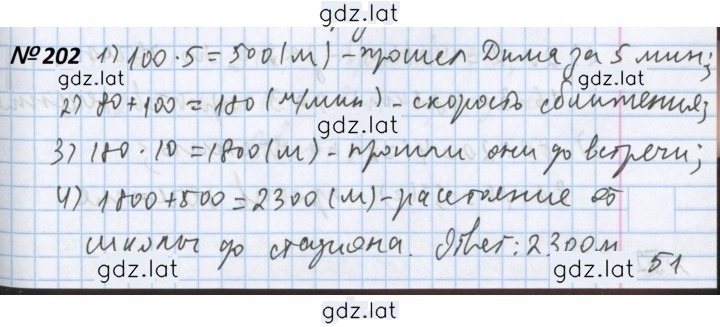 gdz.lat
№ 202 1) 100 · 5 = 500 (м) – прошел Дима за 5 мин;
gdz.lat gdz.lat
2) 80 + 100 = 180 (м/мин) – скорость сближения;
gdz.lat
3) 180 · 10 = 1800 (м) – прошли они до встречи;
gdz.lat gdz.lat
4) 1800 + 500 = 2300 (м) – расстояние от
gdz.lat
школы до стадиона. Ответ: 2300 м
gdz.lat gdz.lat 51
gdz.lat